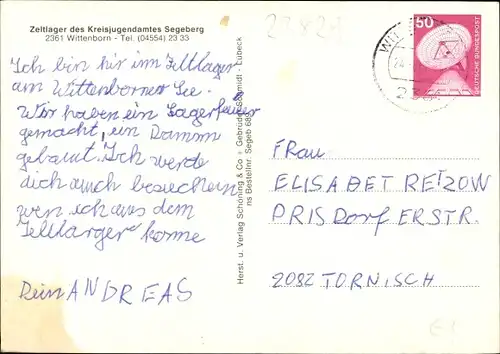 Zeltlager des Kreisjugendamtes Segeberg
2361 Wittenborn - Tel. (04554) 23 33
Ich bin hir im Zeltlager
am Wittenborner See.
Wir haben ein Lagerfeuer
gemacht, ein Damm
gebaut. Ich werde
dich auch besuchen
wen ich aus dem
Zeltlarger komme
Dein ANDREAS
Herst. u. Verlag Schöning & Co + Gebrüder Schmidt - Lübeck
ns Bestellnr. Segeb 689
50
DEUTSCHE BUNDESPOST
FRAU
ELISABET RETZOW
PRISDORFERSTR.
2082 TORNISCH